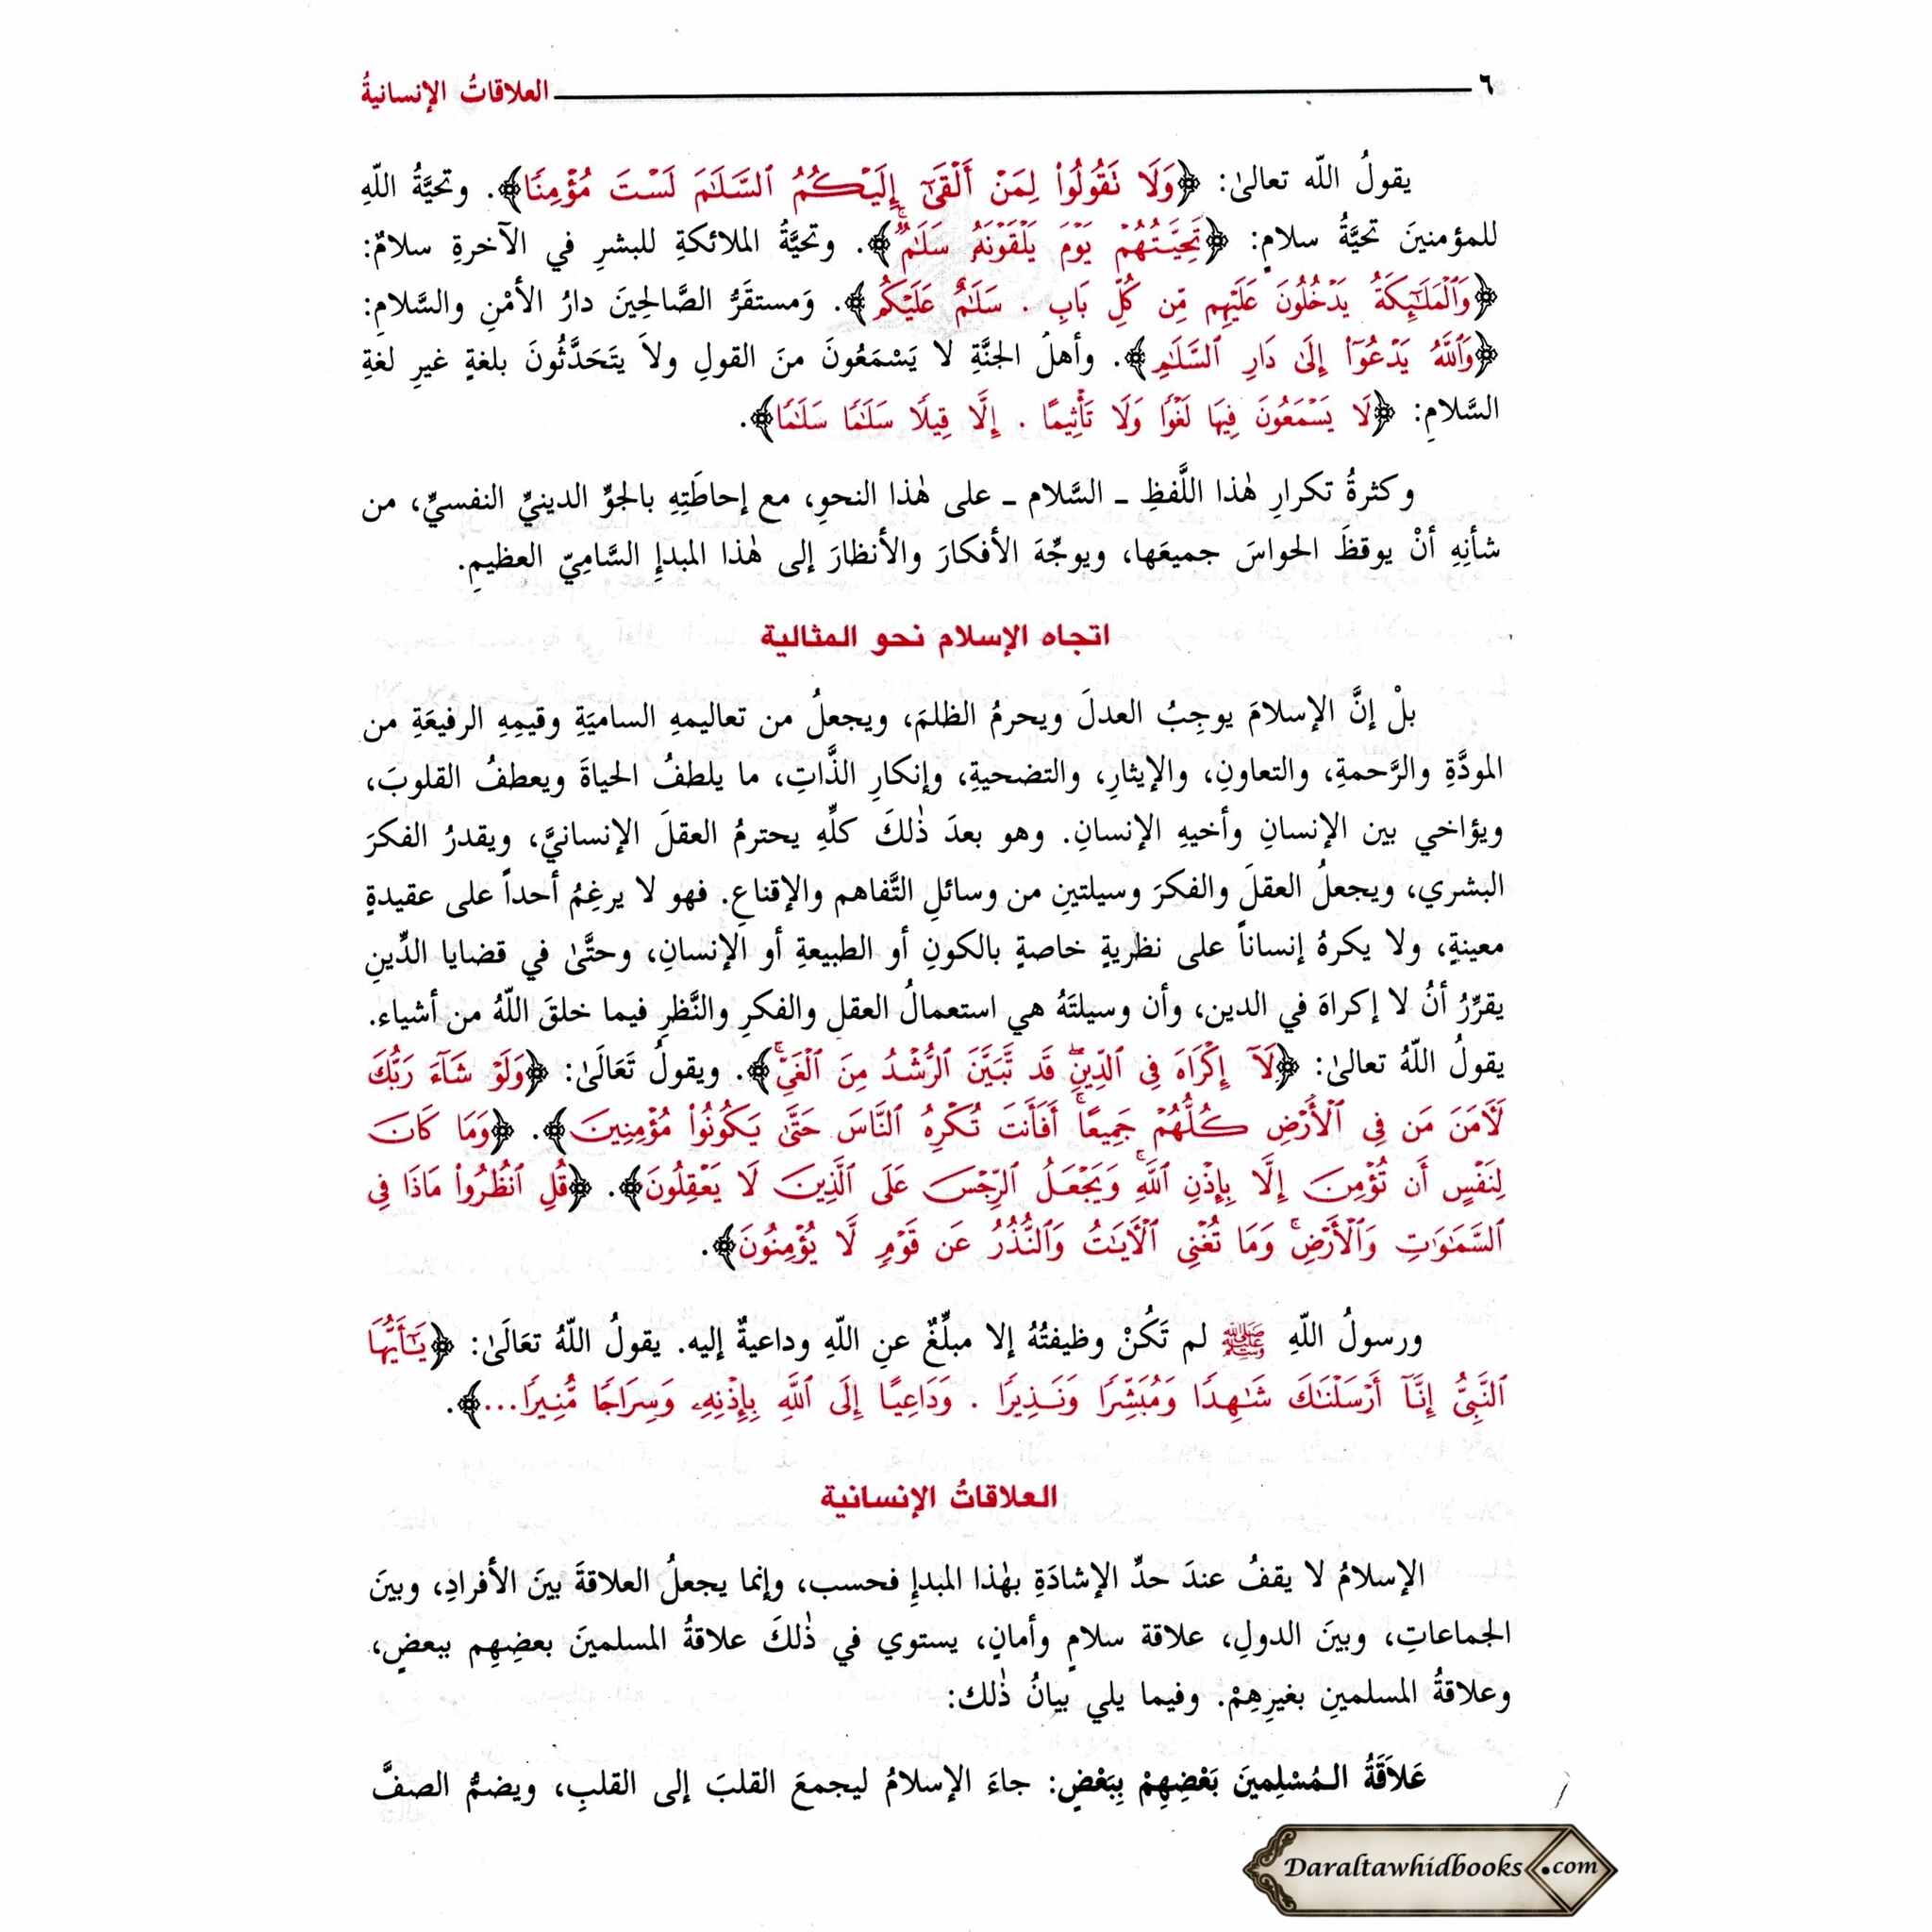 ٦ العلاقاتُ الإنسانيةُ
يقولُ اللّه تعالىٰ: ﴿وَلَا تَقُولُوا۟ لِمَنْ أَلْقَىٰٓ إِلَيْكُمُ ٱلسَّلَـٰمَ لَسْتَ مُؤْمِنًا﴾. وتحيَّةُ اللّهِ
للمؤمنينَ تحيَّةُ سلامٍ: ﴿تَحِيَّتُهُمْ يَوْمَ يَلْقَوْنَهُۥ سَلَـٰمٌ ۚ﴾. وتحيَّةُ الملائكةِ للبشرِ في الآخرةِ سلامٌ:
﴿وَٱلْمَلَـٰٓئِكَةُ يَدْخُلُونَ عَلَيْهِم مِّن كُلِّ بَابٍ . سَلَـٰمٌ عَلَيْكُم﴾. وَمستقَرُّ الصَّالحِينَ دارُ الأمْنِ والسَّلامِ:
﴿وَٱللَّهُ يَدْعُوٓا۟ إِلَىٰ دَارِ ٱلسَّلَـٰمِ﴾. وأهلُ الجنَّةِ لا يَسْمَعُونَ منَ القولِ ولاَ يتَحَدَّثُونَ بلغةٍ غيرِ لغةِ
السَّلامِ: ﴿لَا يَسْمَعُونَ فِيهَا لَغْوًا وَلَا تَأْثِيمًا . إِلَّا قِيلًا سَلَـٰمًا سَلَـٰمًا﴾.
وكثرةُ تكرارِ هٰذا اللَّفظِ ـ السَّلام ـ على هٰذا النحوِ، مع إحاطَتِهِ بالجوِّ الدينيِّ النفسيِّ، من
شأنِهِ أنْ يوقظَ الحواسَ جميعَها، ويوجِّهَ الأفكارَ والأنظارَ إلى هٰذا المبدإِ السَّامِيّ العظيمِ.
اتجاه الإسلام نحو المثالية
بلْ إنَّ الإسلامَ يوجِبُ العدلَ ويحرمُ الظلمَ، ويجعلُ من تعاليمهِ الساميَةِ وقيمِهِ الرفيعَةِ من
المودَّةِ والرَّحمةِ، والتعاونِ، والإيثارِ، والتضحيةِ، وإنكارِ الذَّاتِ، ما يلطفُ الحياةَ ويعطفُ القلوبَ،
ويؤاخي بين الإنسانِ وأخيهِ الإنسانِ. وهو بعدَ ذٰلكَ كلِّهِ يحترمُ العقلَ الإنسانيَّ، ويقدرُ الفكرَ
البشري، ويجعلُ العقلَ والفكرَ وسيلتينِ من وسائلِ التَّفاهم والإقناعِ. فهو لا يرغِمُ أحداً على عقيدةٍ
معينةٍ، ولا يكرهُ إنساناً على نظريةٍ خاصةٍ بالكونِ أو الطبيعةِ أو الإنسانِ، وحتَّىٰ في قضايا الدِّينِ
يقرِّرُ أنُ لا إكراهَ في الدين، وأن وسيلتَهُ هي استعمالُ العقلِ والفكرِ والنَّظرِ فيما خلقَ اللّهُ من أشياء.
يقولُ اللّهُ تعالىٰ: ﴿لَآ إِكْرَاهَ فِى ٱلدِّينِ ۖ قَد تَّبَيَّنَ ٱلرُّشْدُ مِنَ ٱلْغَىِّ ۚ﴾. ويقولُ تَعَالَىٰ: ﴿وَلَوْ شَآءَ رَبُّكَ
لَـَٔامَنَ مَن فِى ٱلْأَرْضِ كُلُّهُمْ جَمِيعًا ۚ أَفَأَنتَ تُكْرِهُ ٱلنَّاسَ حَتَّىٰ يَكُونُوا۟ مُؤْمِنِينَ﴾. ﴿وَمَا كَانَ
لِنَفْسٍ أَن تُؤْمِنَ إِلَّا بِإِذْنِ ٱللَّهِ ۚ وَيَجْعَلُ ٱلرِّجْسَ عَلَى ٱلَّذِينَ لَا يَعْقِلُونَ﴾. ﴿قُلِ ٱنظُرُوا۟ مَاذَا فِى
ٱلسَّمَـٰوَٰتِ وَٱلْأَرْضِ ۚ وَمَا تُغْنِى ٱلْـَٔايَـٰتُ وَٱلنُّذُرُ عَن قَوْمٍ لَّا يُؤْمِنُونَ﴾.
ورسولُ اللّهِ ﷺ لم تَكُنْ وظيفتُهُ إلا مبلِّغٌ عنِ اللّهِ وداعيةٌ إليه. يقولُ اللّهُ تعَالَىٰ: ﴿يَـٰٓأَيُّهَا
ٱلنَّبِىُّ إِنَّآ أَرْسَلْنَـٰكَ شَـٰهِدًا وَمُبَشِّرًا وَنَذِيرًا . وَدَاعِيًا إِلَى ٱللَّهِ بِإِذْنِهِۦ وَسِرَاجًا مُّنِيرًا...﴾.
العلاقاتُ الإنسانية
الإسلامُ لا يقفُ عندَ حدِّ الإشادَةِ بهٰذا المبدإِ فحسب، وإنما يجعلُ العلاقةَ بينَ الأفرادِ، وبينَ
الجماعاتِ، وبينَ الدولِ، علاقة سلامٍ وأمانٍ، يستوي في ذٰلكَ علاقةُ المسلمينَ بعضِهِم ببعضٍ،
وعلاقةُ المسلمينِ بغيرِهِمْ. وفيما يلي بيانُ ذٰلك:
عَلاَقَةُ الـمُسْلِمينَ بَعْضِهِمْ بِبَعْضٍ: جاءَ الإسلامُ ليجمعَ القلبَ إلى القلبِ، ويضمُّ الصفَّ
Daraltawhidbooks.com